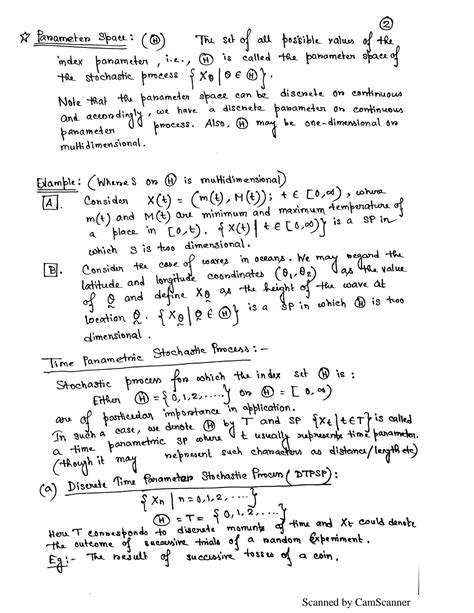 ②
☆ Parameter Space: (Ⓗ) The set of all possible values of the
index parameter, i.e., Ⓗ is called the parameter space of
the stochastic process { X_θ | θ ∈ Ⓗ }.
Note that the parameter space can be discrete or continuous
and accordingly, we have a discrete parameter or continuous
parameter process. Also, Ⓗ may be one-dimensional or
multidimensional.
Example: (Where S or Ⓗ is multidimensional)
A. Consider X(t) = (m(t), M(t)); t ∈ [0,∞), where
m(t) and M(t) are minimum and maximum temperature of
a place in [0,t). {X(t) | t ∈ [0,∞)} is a SP in
which S is two dimensional.
B. Consider the case of waves in oceans. We may regard the
latitude and longitude coordinates (θ₁,θ₂) as the value
of θ and define X_θ as the height of the wave at
location θ. {X_θ | θ ∈ Ⓗ} is a SP in which Ⓗ is two
dimensional.
Time Parametric Stochastic Process:-
Stochastic process for which the index set Ⓗ is:
Either Ⓗ = {0,1,2,.....} or Ⓗ = [0,∞)
are of particular importance in application.
In such a case, we denote Ⓗ by T and SP {X_t | t ∈ T} is called
a time parametric SP where t usually represents time parameter.
(though it may represent such characters as distance/length etc)
(a) Discrete Time Parameter Stochastic Process (DTPSP):
{ X_n | n = 0,1,2, .... }
Ⓗ = T = {0,1,2, ....}
Here T corresponds to discrete moments of time and X_t could denote
the outcome of successive trials of a random experiment.
Eg:- The result of successive tosses of a coin.
Scanned by CamScanner